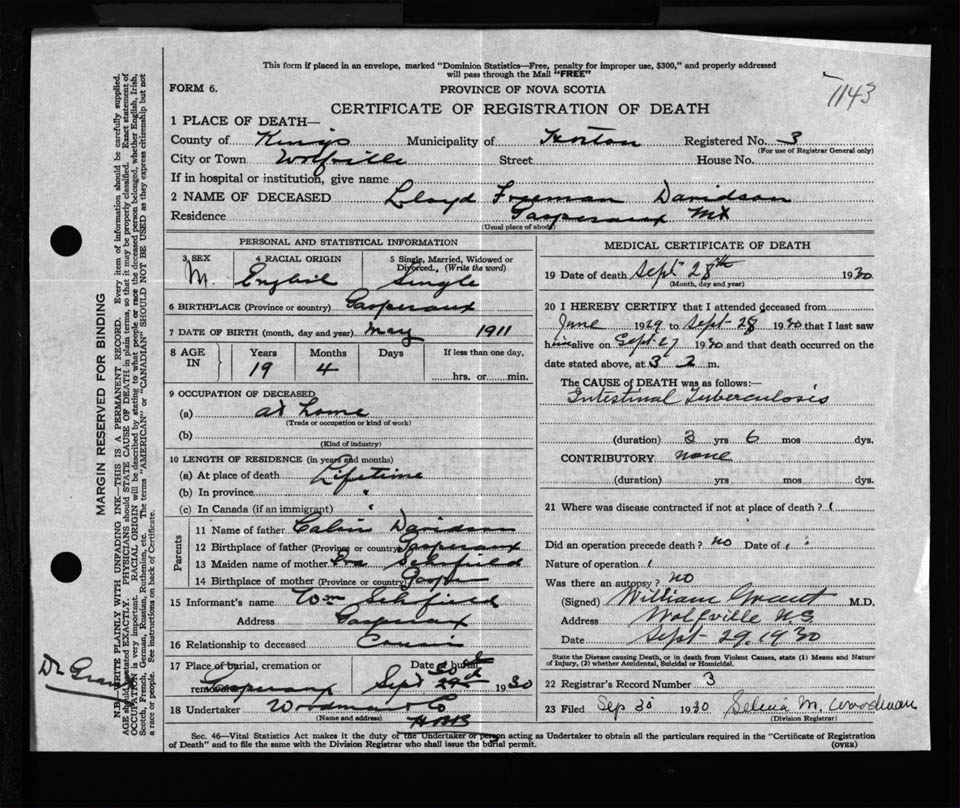 This form if placed in an envelope, marked "Dominion Statistics—Free, penalty for improper use, $300," and properly addressed
will pass through the Mail "FREE"
FORM 6.
PROVINCE OF NOVA SCOTIA
1143
CERTIFICATE OF REGISTRATION OF DEATH
1 PLACE OF DEATH—
County of Kings Municipality of Horton Registered No. 3
(For use of Registrar General only)
City or Town Wolfville Street House No.
If in hospital or institution, give name
2 NAME OF DECEASED Lloyd Freeman Davidson
Residence Gaspereaux Mt
(Usual place of abode)
PERSONAL AND STATISTICAL INFORMATION
3 SEX 4 RACIAL ORIGIN 5 Single, Married, Widowed or
Divorced, (Write the word)
M. English Single
6 BIRTHPLACE (Province or country) Gaspereaux
7 DATE OF BIRTH (month, day and year) May 1911
8 AGE IN Years Months Days If less than one day,
19 4
hrs. or min.
9 OCCUPATION OF DECEASED
(a) at home
(Trade or occupation or kind of work)
(b)
(Kind of industry)
10 LENGTH OF RESIDENCE (in years and months)
(a) At place of death Lifetime
(b) In province "
(c) In Canada (if an immigrant) "
Parents
11 Name of father Calvin Davidson
12 Birthplace of father (Province or country) Gaspereaux
13 Maiden name of mother Schofield
14 Birthplace of mother (Province or country)
15 Informant's name Wm Schofield
Address Gaspereaux
16 Relationship to deceased Cousin
17 Place of burial, cremation or Date of burial
removal Gaspereaux Sept 30th 1930
18 Undertaker Woodman & Co
(Name and address)
MEDICAL CERTIFICATE OF DEATH
19 Date of death Sept 28th 1930
(Month, day and year)
20 I HEREBY CERTIFY that I attended deceased from
June 1929 to Sept 28 1930 that I last saw
him alive on Sept 27 1930 and that death occurred on
date stated above, at 3 2 m.
The CAUSE OF DEATH was as follows:—
Intestinal Tuberculosis
(duration) 3 yrs 6 mos dys.
CONTRIBUTORY none
(duration) yrs mos dys.
21 Where was disease contracted if not at place of death?
Did an operation precede death? no Date of
Nature of operation
Was there an autopsy? no
(Signed) William Grant M.D.
Address Wolfville N.S.
Date Sept 29, 1930
State the Disease causing Death, or in death from Violent Causes, state (1) Means and
Nature of Injury, (2) whether Accidental, Suicidal or Homicidal.
22 Registrar's Record Number 3
23 Filed Sep 30 1930 Selina M. Woodman
(Division Registrar)
Sec. 46—Vital Statistics Act makes it the duty of the Undertaker or person acting as Undertaker to obtain all the particulars required in the "Certificate of Registration
of Death" and to file the same with the Division Registrar who shall issue the burial permit. (OVER)
MARGIN RESERVED FOR BINDING
N.B.—WRITE PLAINLY WITH UNFADING INK—THIS IS A PERMANENT RECORD. Every item of information should be carefully supplied.
AGE should be stated EXACTLY. PHYSICIANS should STATE CAUSE OF DEATH in plain terms, so that it may be properly classified. Exact statement of
OCCUPATION is very important. RACIAL ORIGIN will be described by stating to what people or race the deceased person belonged, whether English, Irish,
Scotch, French, German, Russian, Ruthenian, etc. The terms "AMERICAN" or "CANADIAN" SHOULD NOT BE USED as they express citizenship but not
a race or people. See instructions on back of Certificate.
Dr Grant